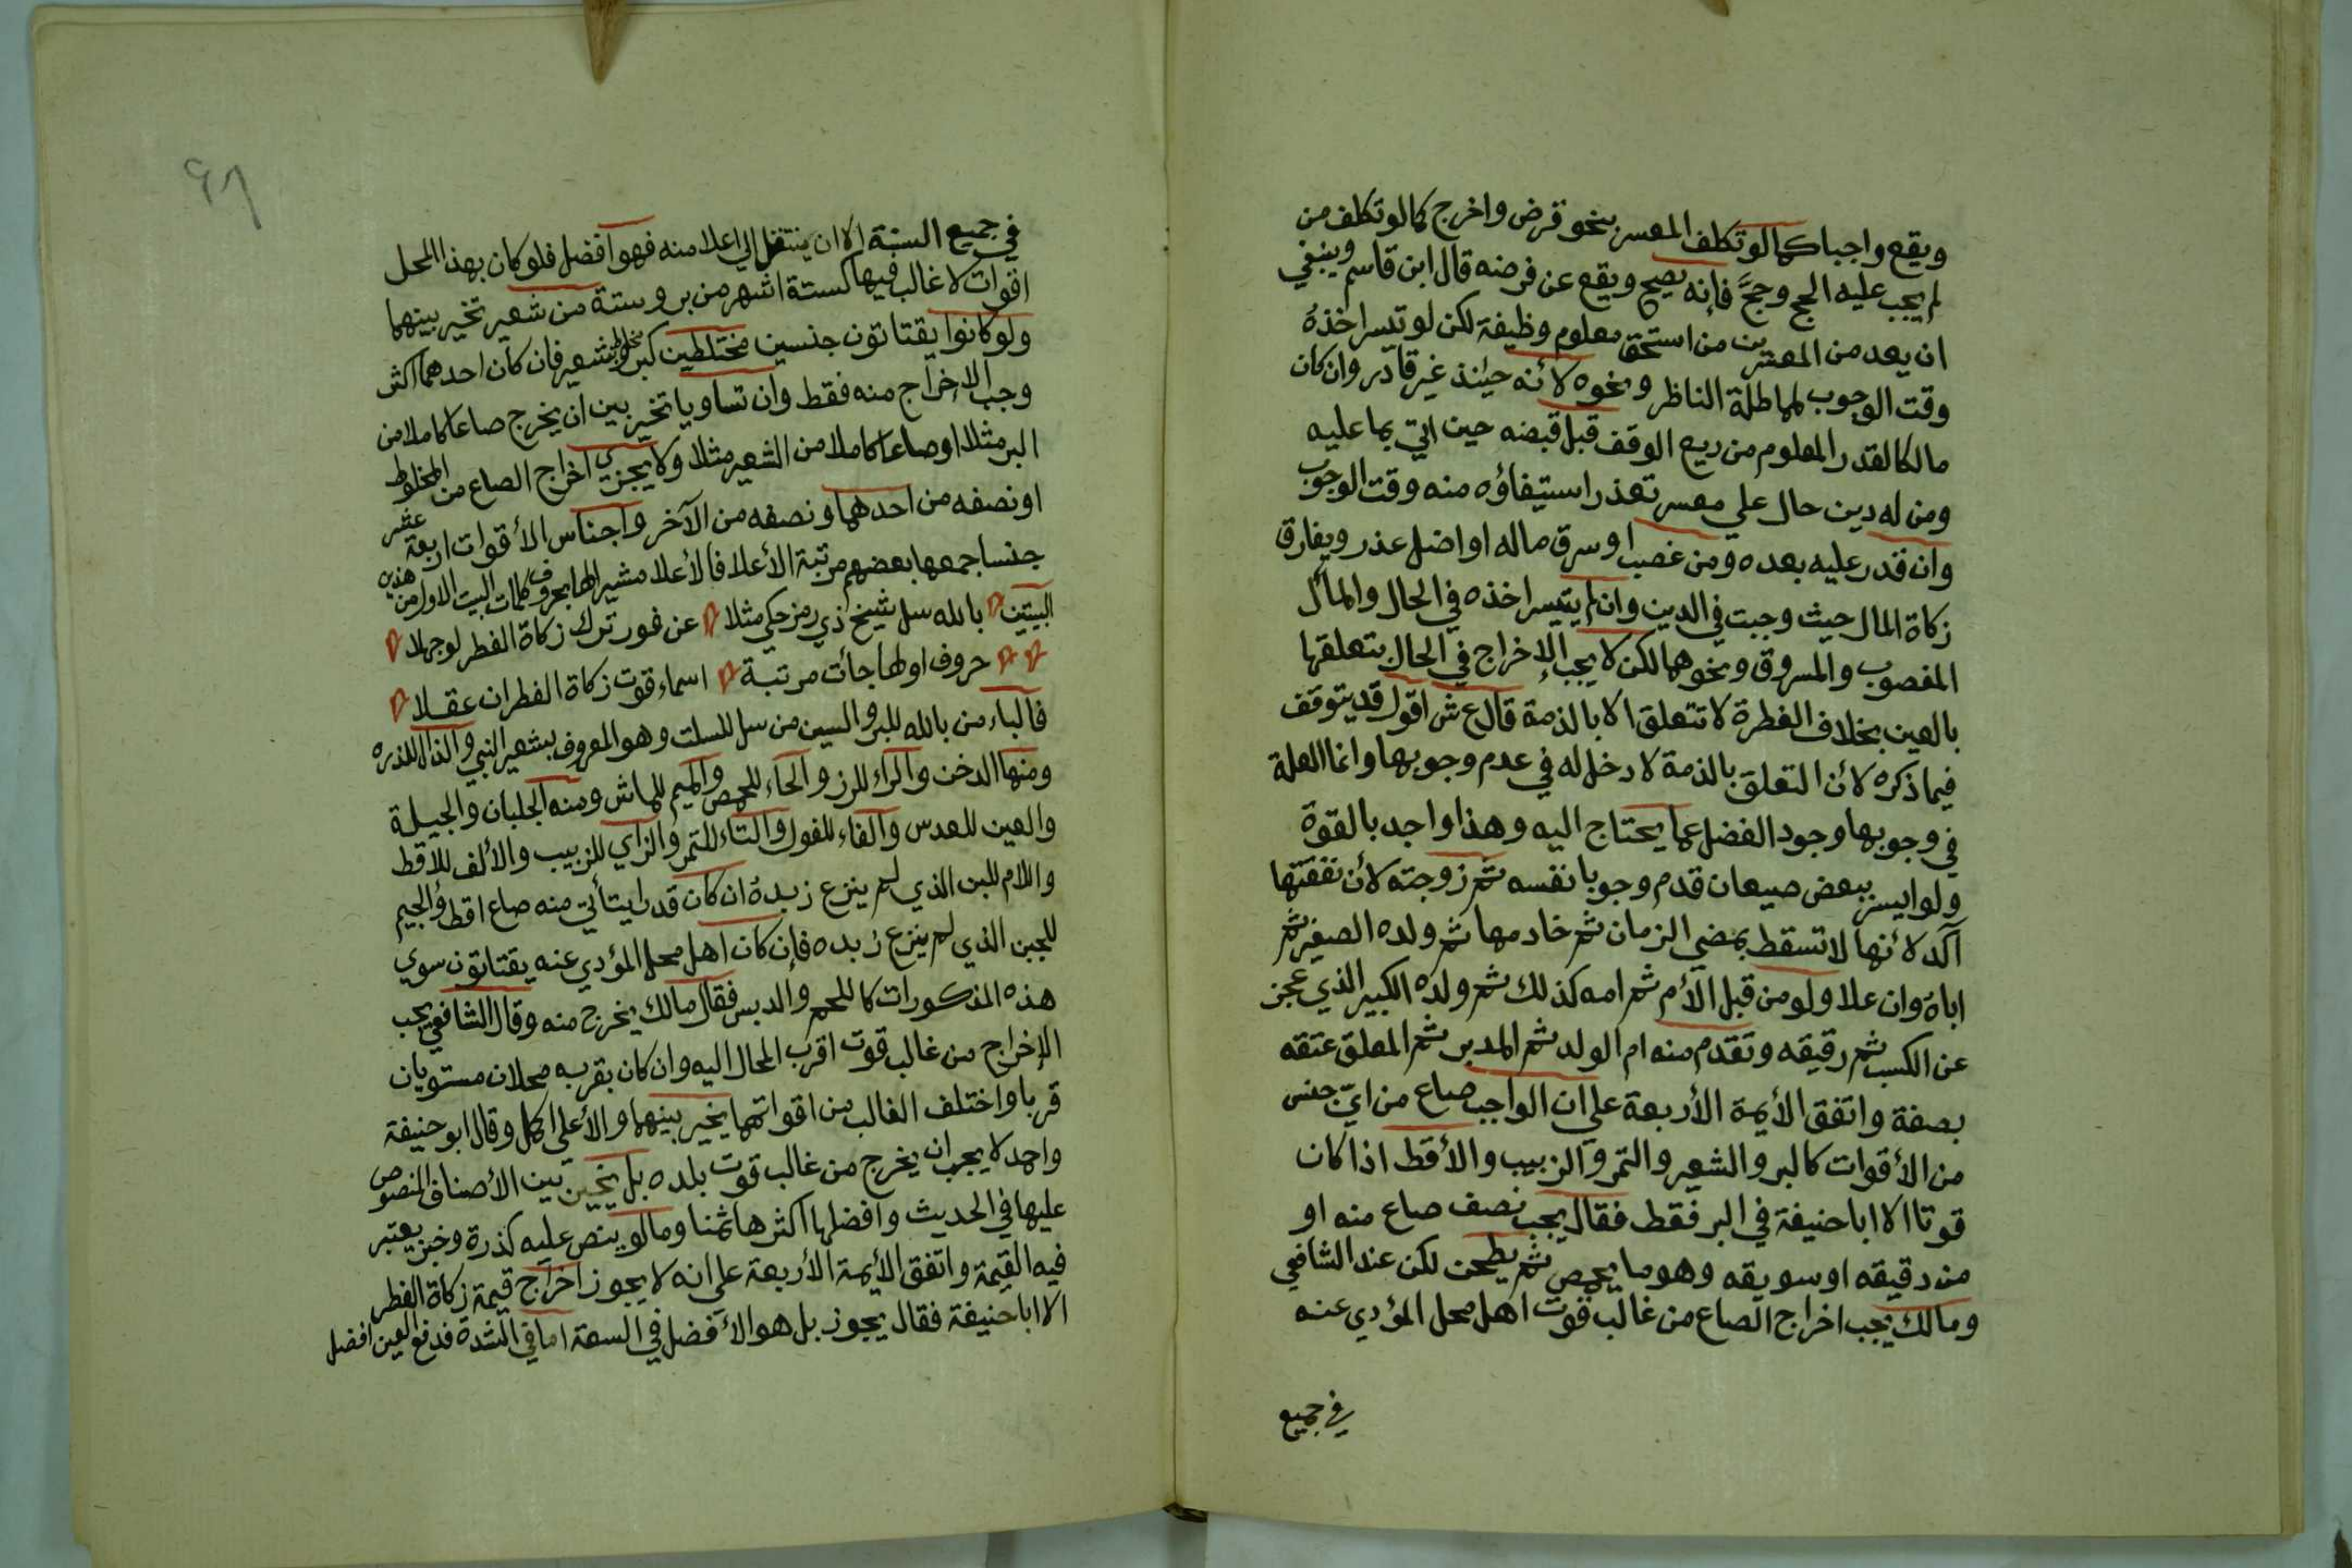 ويقع واجبا كما لو تكلف المعسر بنحو قرض واخرج كما لو تكلف من
لم يجب عليه الحج وحجَّ فإنه يصح ويقع عن فرضه قال ابن قاسم وينبغي
ان يعد من المعسرين من استحق معلوم وظيفة لكن لو تيسر اخذهُ
وقت الوجوب لمماطلة الناظر ونحوه لأنه حينئذ غير قادر وان كان
مالكا لقدر المعلوم من ريع الوقف قبل قبضه حين اتي بما عليه
ومن له دين حال علي معسر تعذر استيفاؤه منه وقت الوجوب
وان قدر عليه بعده ومن غصب او سرق ماله او اضل عذر ويفارق
زكاة المال حيث وجبت في الدين وان لم يتيسر اخذه في الحال والمأل
المغصوب والمسروق ونحوهما لكن لا يجب الإخراج في الحال بتعلقها
بالعين بخلاف الفطرة لا تتعلق الا بالذمة قال ع ش اقول قد يتوقف
فيما ذكره لأن التعلق بالذمة لا دخل له في عدم وجوبها وانما العلة
في وجوبها وجود الفضل عما يحتاج اليه وهذا واجد بالقوة
ولو ايسر ببعض صيعان قدم وجوبا نفسه ثم زوجته لأن نفقتها
آكد لأنها لا تسقط بمضي الزمان ثم خادمها ثم ولده الصغير ثم
اباهُ وان علا ولو من قبل الأم ثم امه كذلك ثم ولده الكبير الذي عجز
عن الكسب ثم رقيقه وتقدم منه ام الولد ثم المدبر ثم المعلق عتقه
بصفة واتفق الأيمة الأربعة علي ان الواجب صاع من ايّ جنس
من الأقوات كالبر والشعير والتمر والزبيب والأقط اذا كان
قوتا الا ابا حنيفة في البر فقط فقال يجب نصف صاع منه او
من دقيقه او سويقه وهو ما يحمص ثم يطحن لكن عند الشافعي
ومالك يجب اخراج الصاع من غالب قوت اهل محل المؤدي عنه
في جميع
في جميع السنة الا ان ينتقل الي اعلا منه فهو افضل فلو كان بهذا المحل
اقوات لا غالب فيها كستة اشهر من بر وستة من شعير تخير بينهما
ولو كانوا يقتاتون جنسين مختلطين كبر مخلوط بشعير فان كان احدهما اكثر
وجب الإخراج منه فقط وان تساويا تخير بين ان يخرج صاعا كاملا من
البر مثلا او صاعا كاملا من الشعير مثلا ولا يجزي اخراج الصاع من المخلوط
او نصفه من احدهما ونصفه من الآخر واجناس الأقوات اربعة عشر
جنسا جمعها بعضهم مرتبة الأعلا فالأعلا مشيرا لها بحروف كلمات البيت الاول من هذين
البيتين بالله سل شيخ ذي رمز حكي مثلا عن فور ترك زكاة الفطر لو جهلا
حروف اولها جأت مرتبة اسماء قوت زكاة الفطر ان عقلا
فالباء من بالله للبر والسين من سل للسلت وهو المعروف بشعير النبي والذال للذره
ومنها الدخن والراء للرز والحاء للحمص والميم للماش ومنه الجلبان والجيلة
والعين للعدس والفاء للفول والتاء للتمر والزاي للزبيب والألف للاقط
واللام للبن الذي لم ينزع زبدهُ ان كان قدرا يتأتي منه صاع اقط والجيم
للجبن الذي لم ينزع زبده فإن كان اهل محل المؤدي عنه يقتاتون سوي
هذه المذكورات كاللحم والدبس فقال مالك يخرج منه وقال الشافعي يجب
الإخراج من غالب قوت اقرب المحال اليه وان كان بقربه محلان مستويان
قربا واختلف الغالب من اقواتهما يخير بينهما والأعلي اكمل وقال ابو حنيفة
واحمد لا يجب ان يخرج من غالب قوت بلده بل يخير بين الأصناف المنصوص
عليها في الحديث وافضلها اكثرها ثمنا وما لو ينص عليه كذرة وخبز يعتبر
فيه القيمة واتفق الأيمة الأربعة علي انه لا يجوز اخراج قيمة زكاة الفطر
الا ابا حنيفة فقال يجوز بل هو الأفضل في السعة اما في الشدة فدفع العين افضل